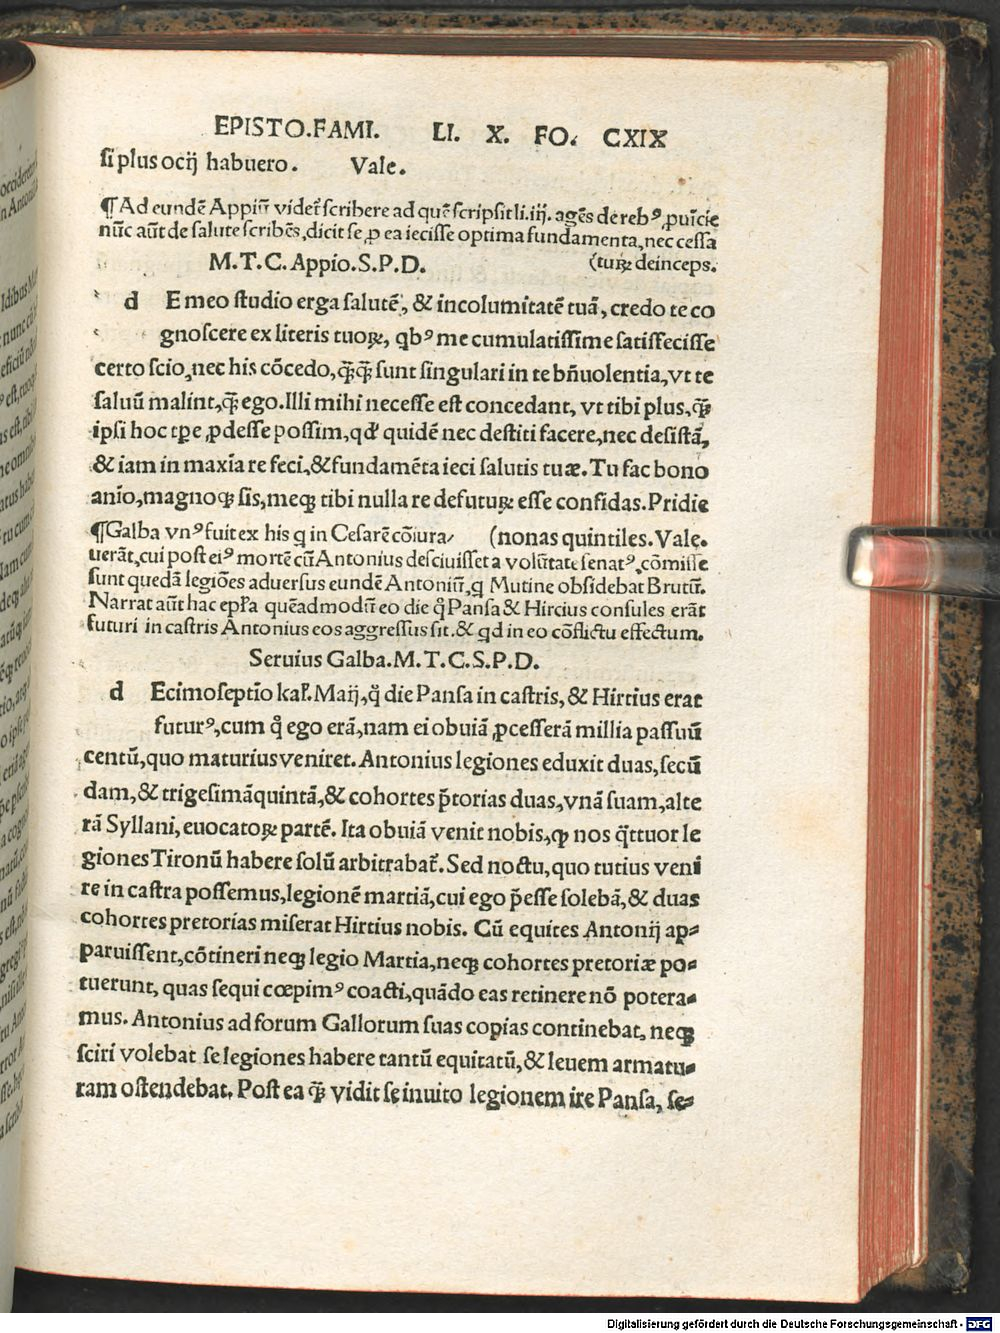 EPISTO.FAMI. LI. X. FO. CXIX
si plus ocij habuero. Vale.
¶Ad eundē Appiū videt̃ scribere ad quē scripsit li.iij. agēs de rebꝰ ꝓuīcie
nūc aūt de salute scribēs, dicit se ꝓ ea iecisse optima fundamenta, nec cessa
M.T.C. Appio.S.P.D. (turꝝ deinceps.
d E meo studio erga salutē, & incolumitatē tuā, credo te co
gnoscere ex literis tuoꝝ, qbꝰ me cumulatissime satisfecisse
certo scio, nec his cōcedo, q̄q̄ sunt singulari in te bn̄uolentia, vt te
saluū malint, q̄ ego. Illi mihi necesse est concedant, vt tibi plus, q̄
ipsi hoc tp̄e ꝓdesse possim, qd' quidē nec destiti facere, nec desistā,
& iam in maxīa re feci, & fundamēta ieci salutis tuæ. Tu fac bono
anīo, magnoqꝫ sis, meqꝫ tibi nulla re defuturꝝ esse confidas. Pridie
¶Galba vnꝰ fuit ex his q in Cesarē cōiura/ (nonas quintiles. Vale.
uerāt, cui post eiꝰ mortē cū Antonius desciuisset a volūtate senatꝰ, cōmisse
sunt quedā legiōes aduersus eundē Antoniū, q Mutine obsidebat Brutū.
Narrat aūt hac ep̄ła quēadmodū eo die q̊ Pansa & Hircius consules erāt
futuri in castris Antonius eos aggressus sit, & qd in eo cōflictu effectum.
Seruius Galba.M.T.C.S.P.D.
d Ecimoseptīo kał. Maij, q̊ die Pansa in castris, & Hirtius erat
futurꝰ, cum q̊ ego erā, nam ei obuiā ꝓcesserā millia passuū
centū, quo maturius veniret. Antonius legiones eduxit duas, secū
dam, & trigesimāquintā, & cohortes p̄torias duas, vnā suam, alte
rā Syllani, euocatoꝝ partē. Ita obuiā venit nobis, ꝙ nos q̄ttuor le
giones Tironū habere solū arbitrabat̃. Sed noctu, quo tutius veni
re in castra possemus, legionē martiā, cui ego p̄esse solebā, & duas
cohortes pretorias miserat Hirtius nobis. Cū equites Antonij ap⸗
paruissent, cōtineri neqꝫ legio Martia, neqꝫ cohortes pretoriæ po⸗
tuerunt, quas sequi cœpimꝰ coacti, quādo eas retinere nō potera⸗
mus. Antonius ad forum Gallorum suas copias continebat, neqꝫ
sciri volebat se legiones habere tantū equitatū, & leuem armatu⸗
ram ostendebat. Post ea q̄ vidit se inuito legionem ire Pansa, se⸗
Digitalisierung gefördert durch die Deutsche Forschungsgemeinschaft - DFG